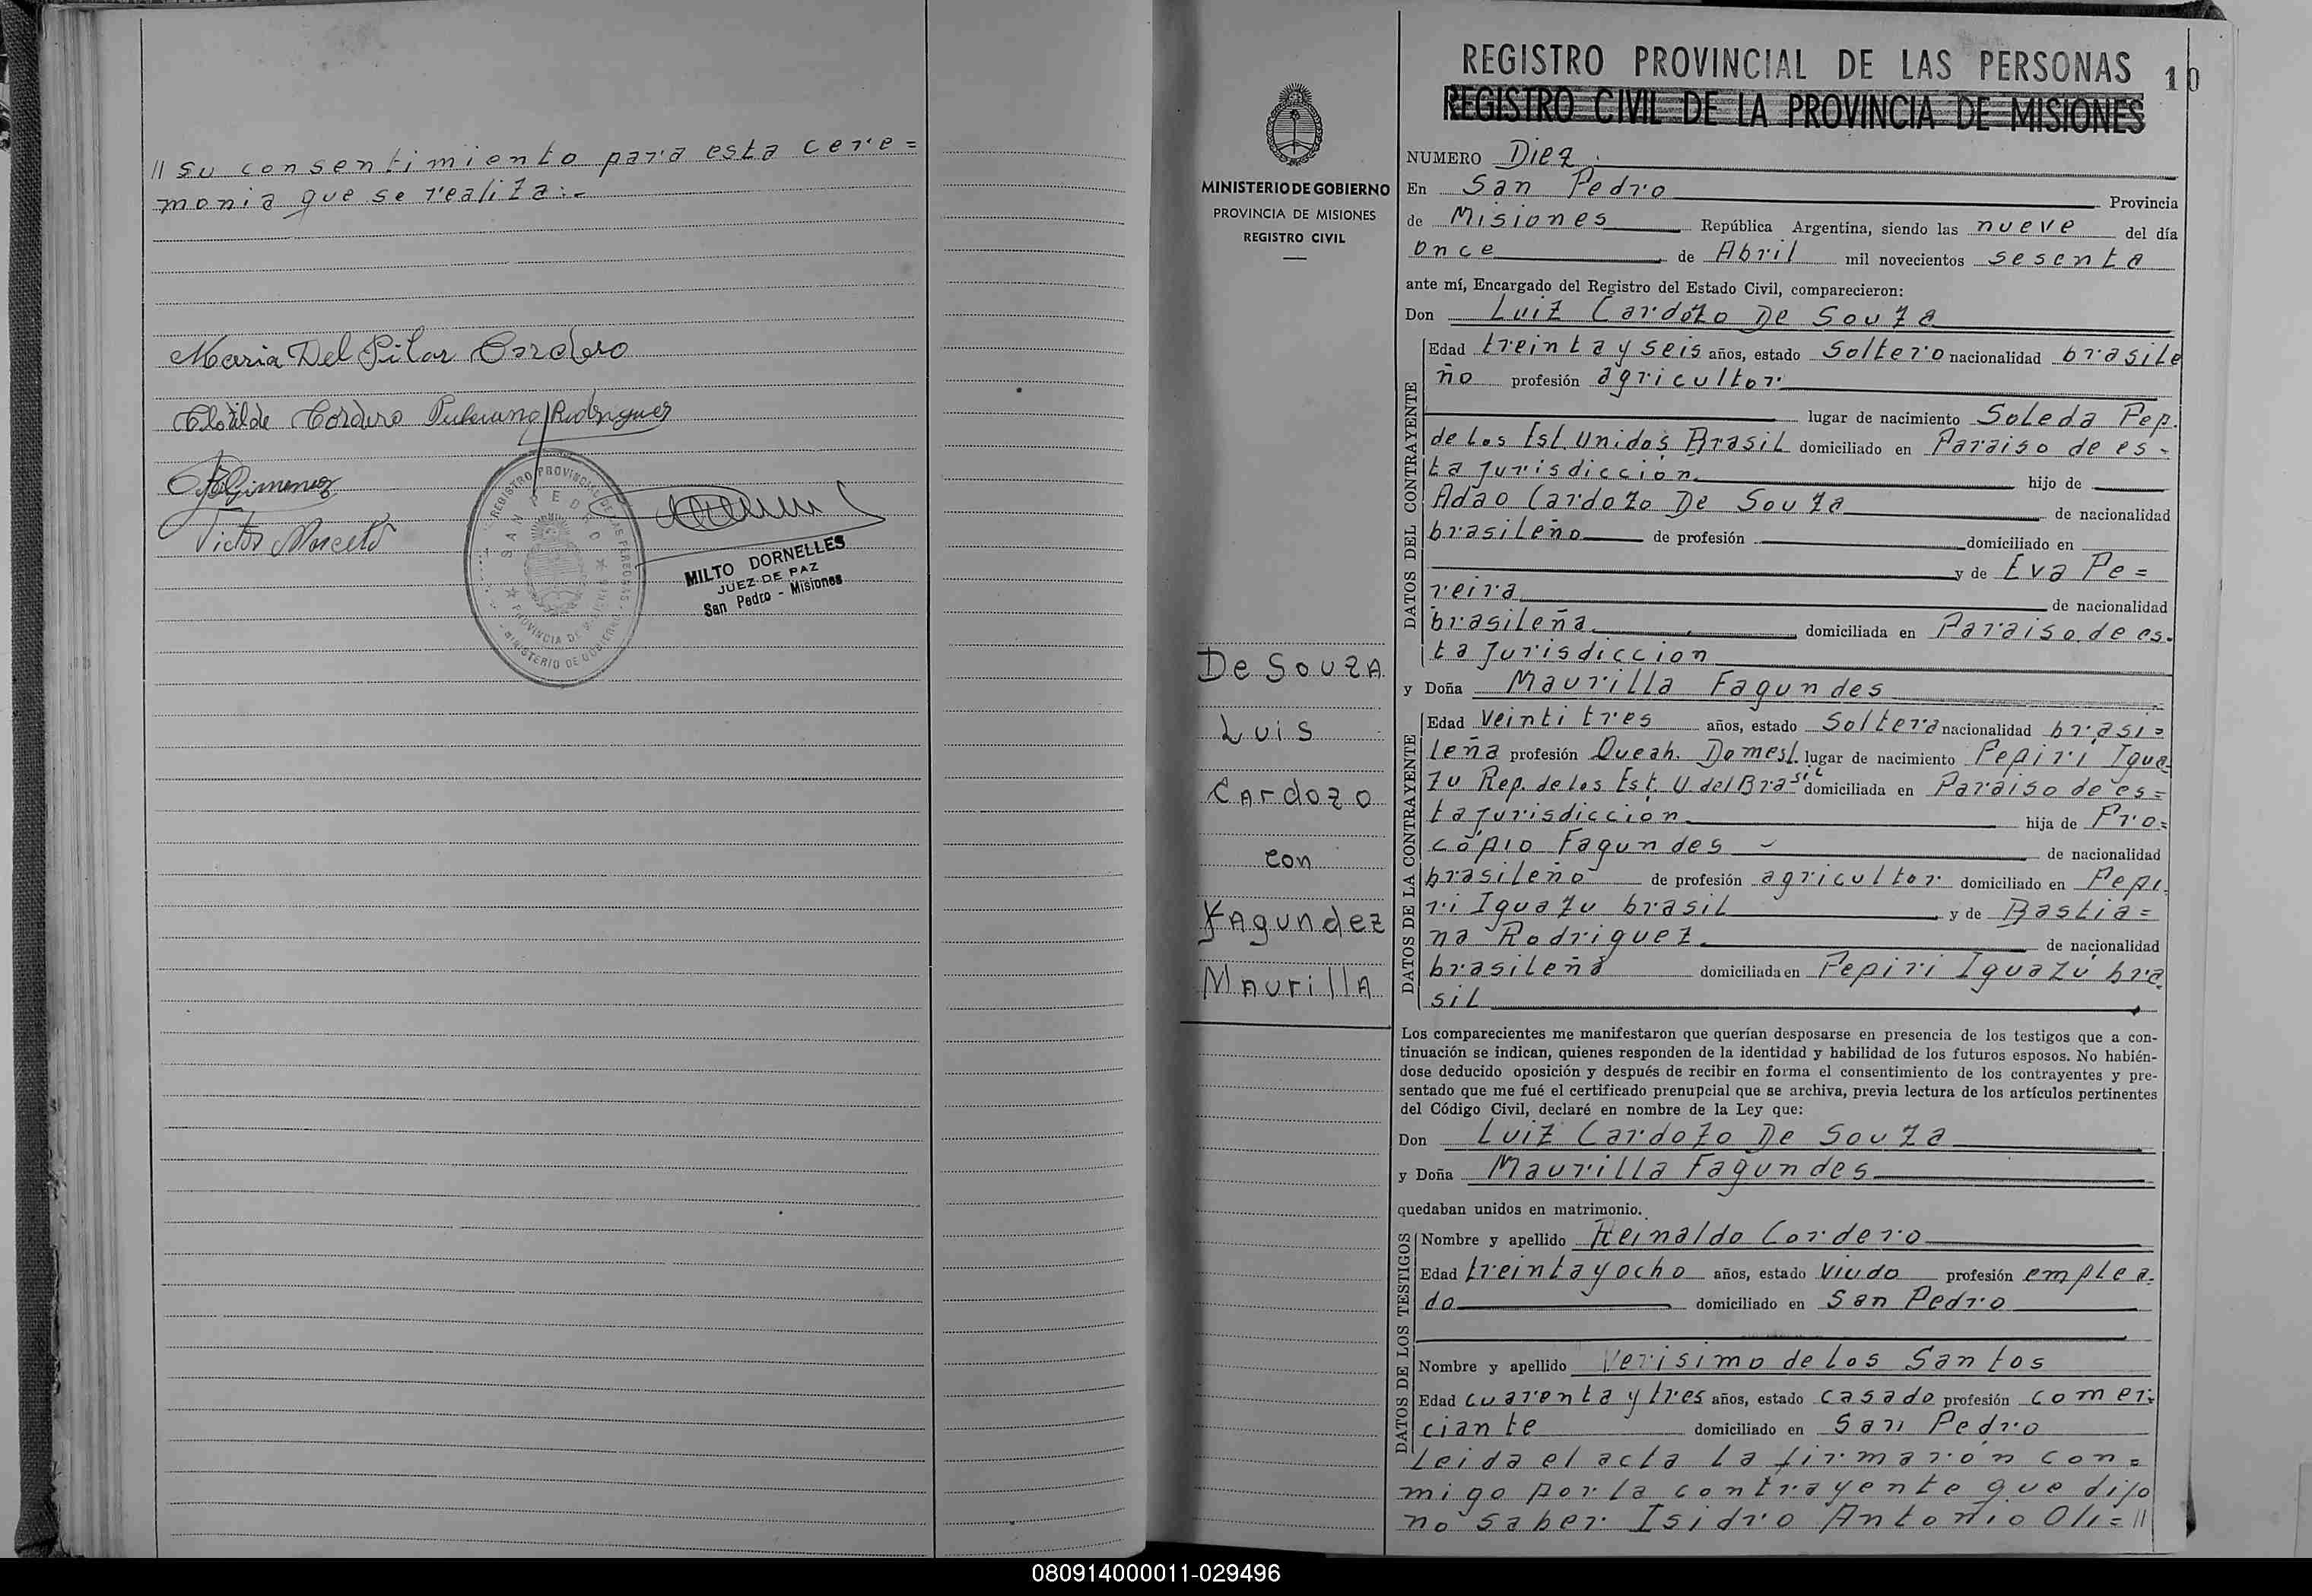 // su consentimiento para esta cere=
monia que se realiza:-
Maria Del Pilar Cordero
Clotilde Cordero Rodriguez
Gimenez
Victor
REGISTRO PROVINCIAL DE LAS PERSONAS
SAN PEDRO
PROVINCIA DE MISIONES
MINISTERIO DE GOBIERNO
MILTO DORNELLES
JUEZ DE PAZ
San Pedro - Misiones
MINISTERIO DE GOBIERNO
PROVINCIA DE MISIONES
REGISTRO CIVIL
De Souza
Luis
Cardozo
con
Fagundez
Maurilla
REGISTRO PROVINCIAL DE LAS PERSONAS 10
REGISTRO CIVIL DE LA PROVINCIA DE MISIONES
NUMERO Diez
En San Pedro Provincia
de Misiones República Argentina, siendo las nueve del día
Once de Abril mil novecientos sesenta
ante mí, Encargado del Registro del Estado Civil, comparecieron:
Don Luiz Cardozo De Souza
DATOS DEL CONTRAYENTE
Edad treinta y seis años, estado Soltero nacionalidad brasile
ño profesión agricultor
lugar de nacimiento Soleda Rep.
de los Est. Unidos Brasil domiciliado en Paraiso de es-
ta Jurisdiccion hijo de
Adao Cardozo De Souza de nacionalidad
brasileño de profesión domiciliado en
y de Eva Pe=
reira de nacionalidad
brasileña domiciliada en Paraiso de es-
ta Jurisdiccion
y Doña Maurilla Fagundes
DATOS DE LA CONTRAYENTE
Edad Veinti tres años, estado Soltera nacionalidad brasi=
leña profesión Queah. Domest. lugar de nacimiento Pepiri Igua
zu Rep. de los Est. U. del Brasil domiciliada en Paraiso de es=
ta jurisdiccion hija de Pro=
copio Fagundes de nacionalidad
brasileño de profesión agricultor domiciliado en Pepi
ri Iguazu brasil y de Bastia=
na Rodriguez de nacionalidad
brasileña domiciliada en Pepiri Iguazú bra
sil
Los comparecientes me manifestaron que querían desposarse en presencia de los testigos que a con-
tinuación se indican, quienes responden de la identidad y habilidad de los futuros esposos. No habién-
dose deducido oposición y después de recibir en forma el consentimiento de los contrayentes y pre-
sentado que me fué el certificado prenupcial que se archiva, previa lectura de los artículos pertinentes
del Código Civil, declaré en nombre de la Ley que:
Don Luiz Cardozo De Souza
y Doña Maurilla Fagundes
quedaban unidos en matrimonio.
DATOS DE LOS TESTIGOS
Nombre y apellido Reinaldo Cordero
Edad treinta y ocho años, estado Viudo profesión emplea-
do domiciliado en San Pedro
Nombre y apellido Verisimo de los Santos
Edad cuarenta y tres años, estado casado profesión comer-
ciante domiciliado en San Pedro
Leida el acta la firmarón con=
migo por la contrayente que dijo
no saber Isidro Antonio Oli=//
080914000011-029496